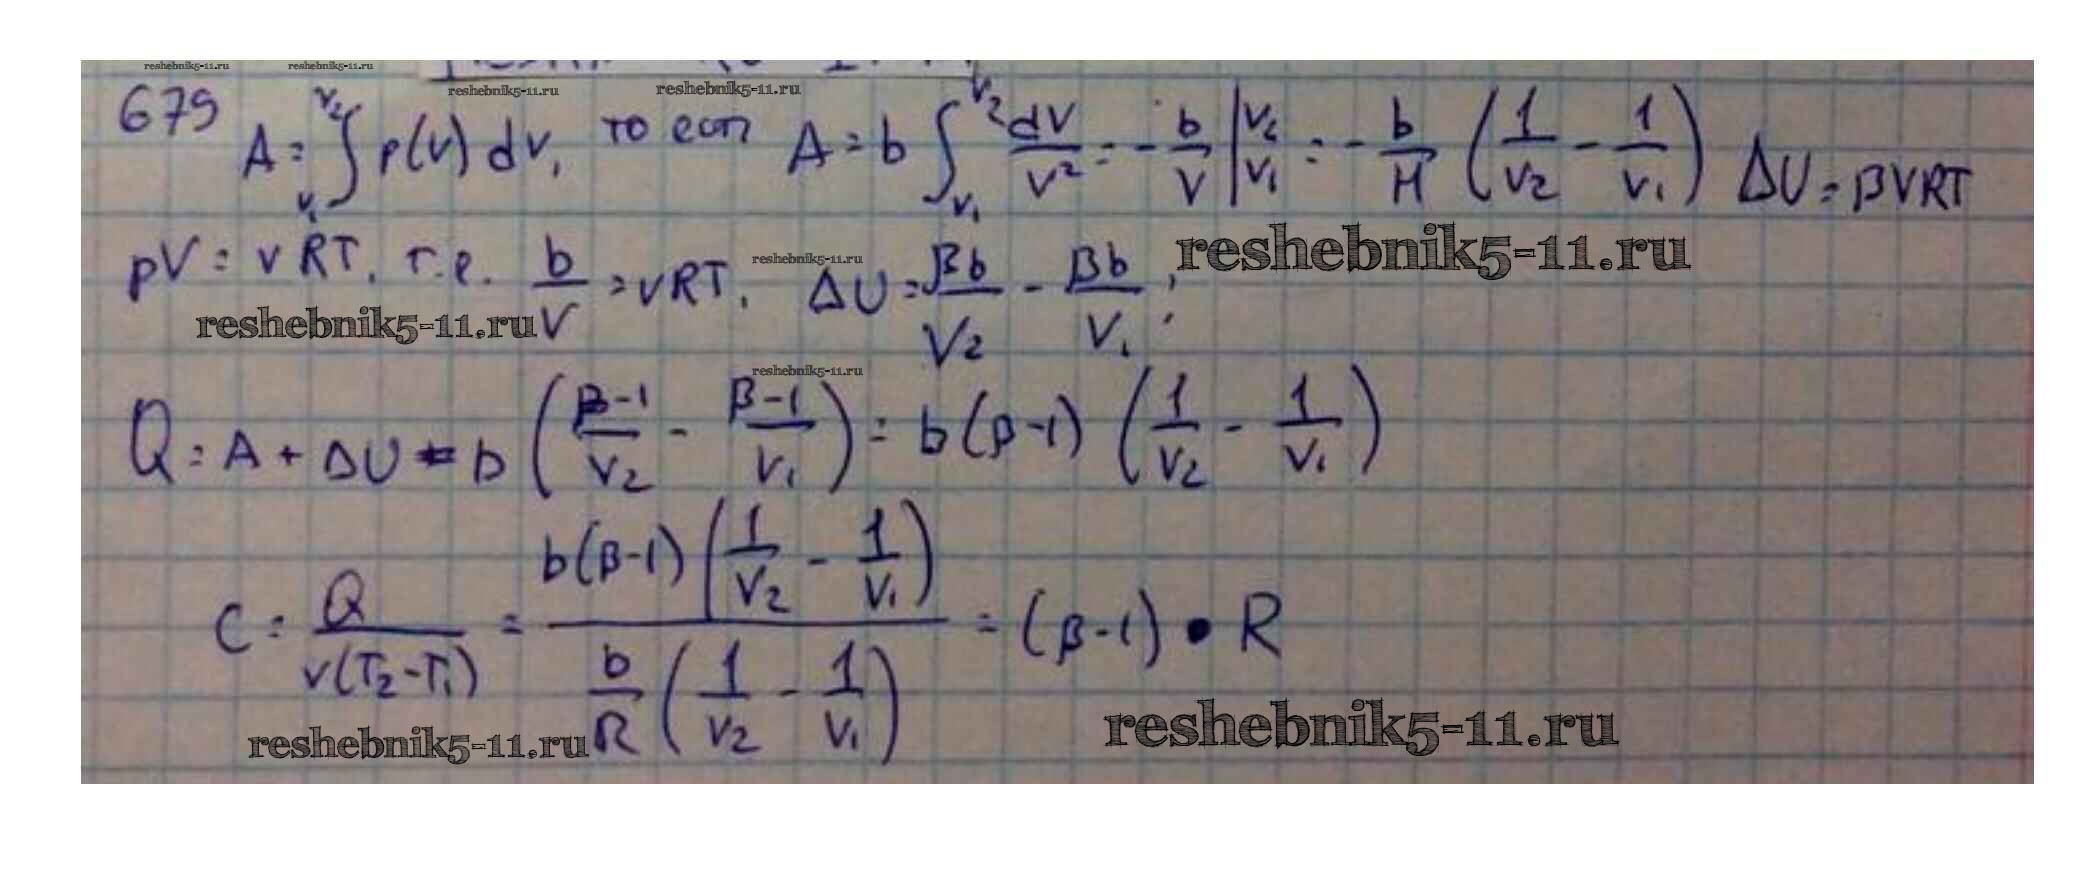 reshebnik5-11.ru reshebnik5-11.ru
reshebnik5-11.ru reshebnik5-11.ru
679 A = ∫_{V₁}^{V₂} p(V) dV, то есть A = b ∫_{V₁}^{V₂} dV/V² = - b/V |_{V₁}^{V₂} = - b/M (1/V₂ - 1/V₁) ΔU = βνRT
reshebnik5-11.ru
pV = νRT, т.е. b/V = νRT, ΔU = βb/V₂ - βb/V₁;
reshebnik5-11.ru
reshebnik5-11.ru
reshebnik5-11.ru
Q = A + ΔU = b ((β-1)/V₂ - (β-1)/V₁) = b(β-1) (1/V₂ - 1/V₁)
C = Q/(ν(T₂-T₁)) = b(β-1)(1/V₂ - 1/V₁) / (b/R (1/V₂ - 1/V₁)) = (β-1) • R
reshebnik5-11.ru
reshebnik5-11.ru